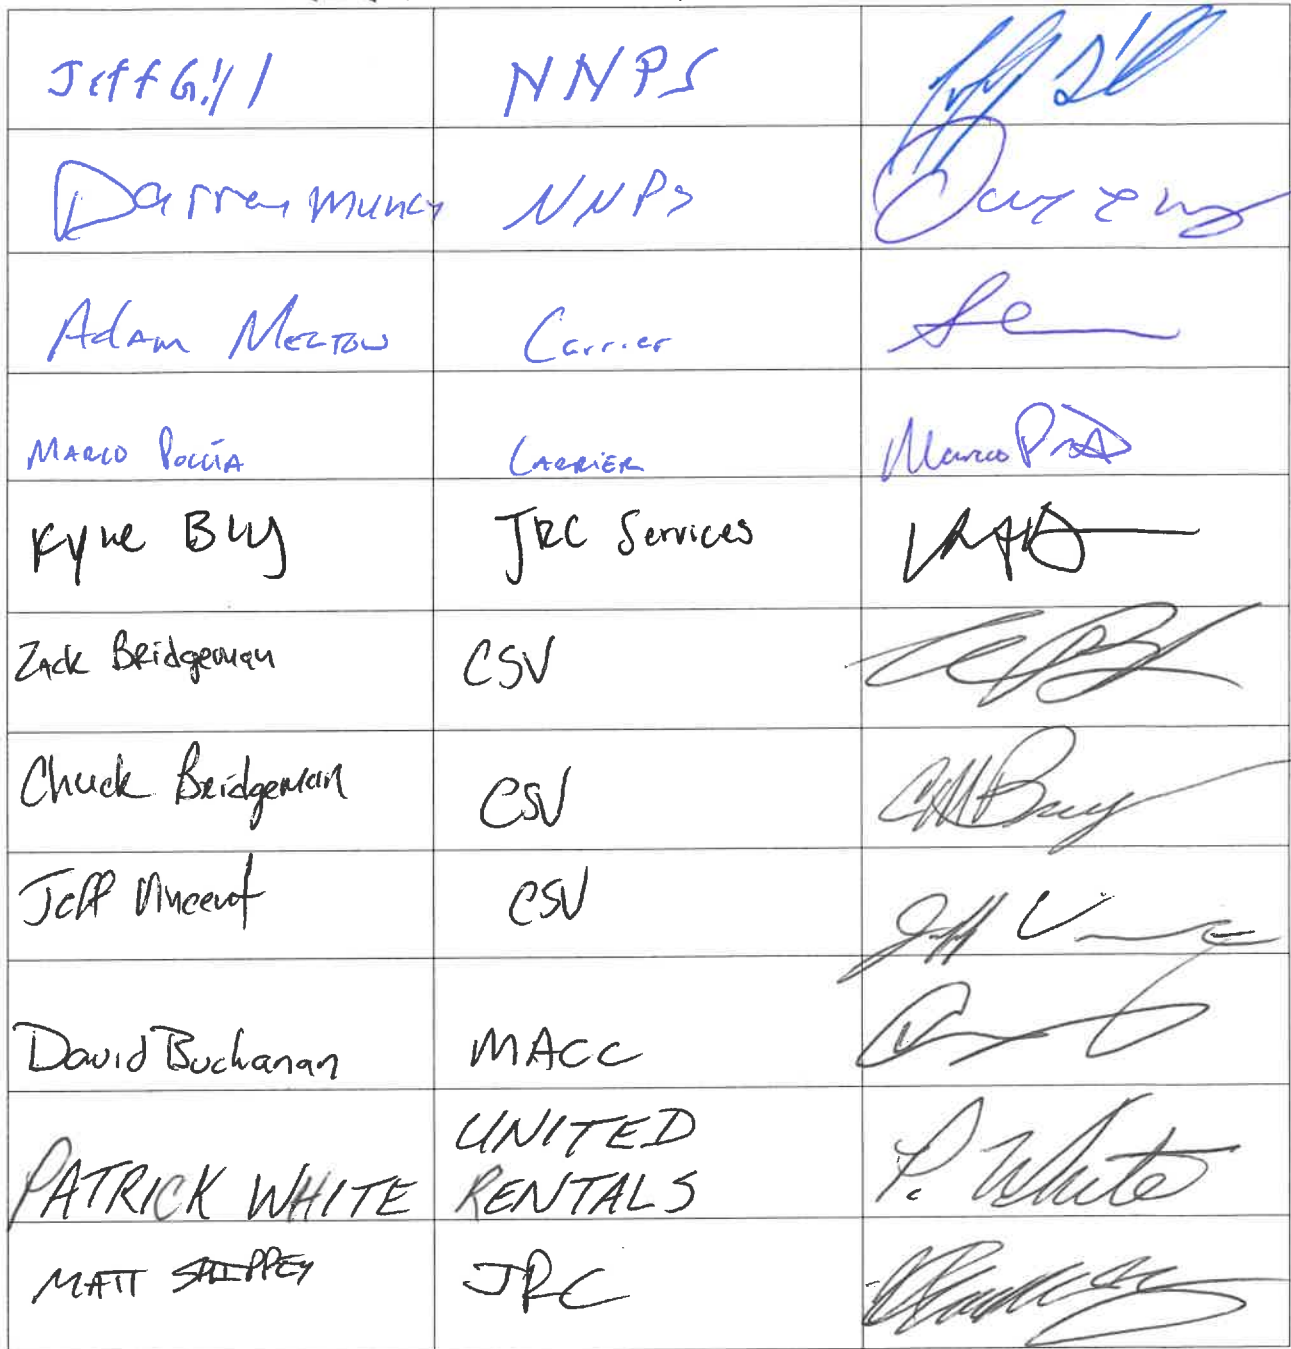 Jeff Gill NNPS
Darren Muncy NNPS
Adam Melton Carrier
Marco Poccia Carrier Marco
JRC Services
Zack Bridgeman CSV
Chuck Bridgeman CSV
Jeff Vincent CSV Jeff
David Buchanan MACC
UNITED
PATRICK WHITE RENTALS P. White
MATT SHIPPEY JRC